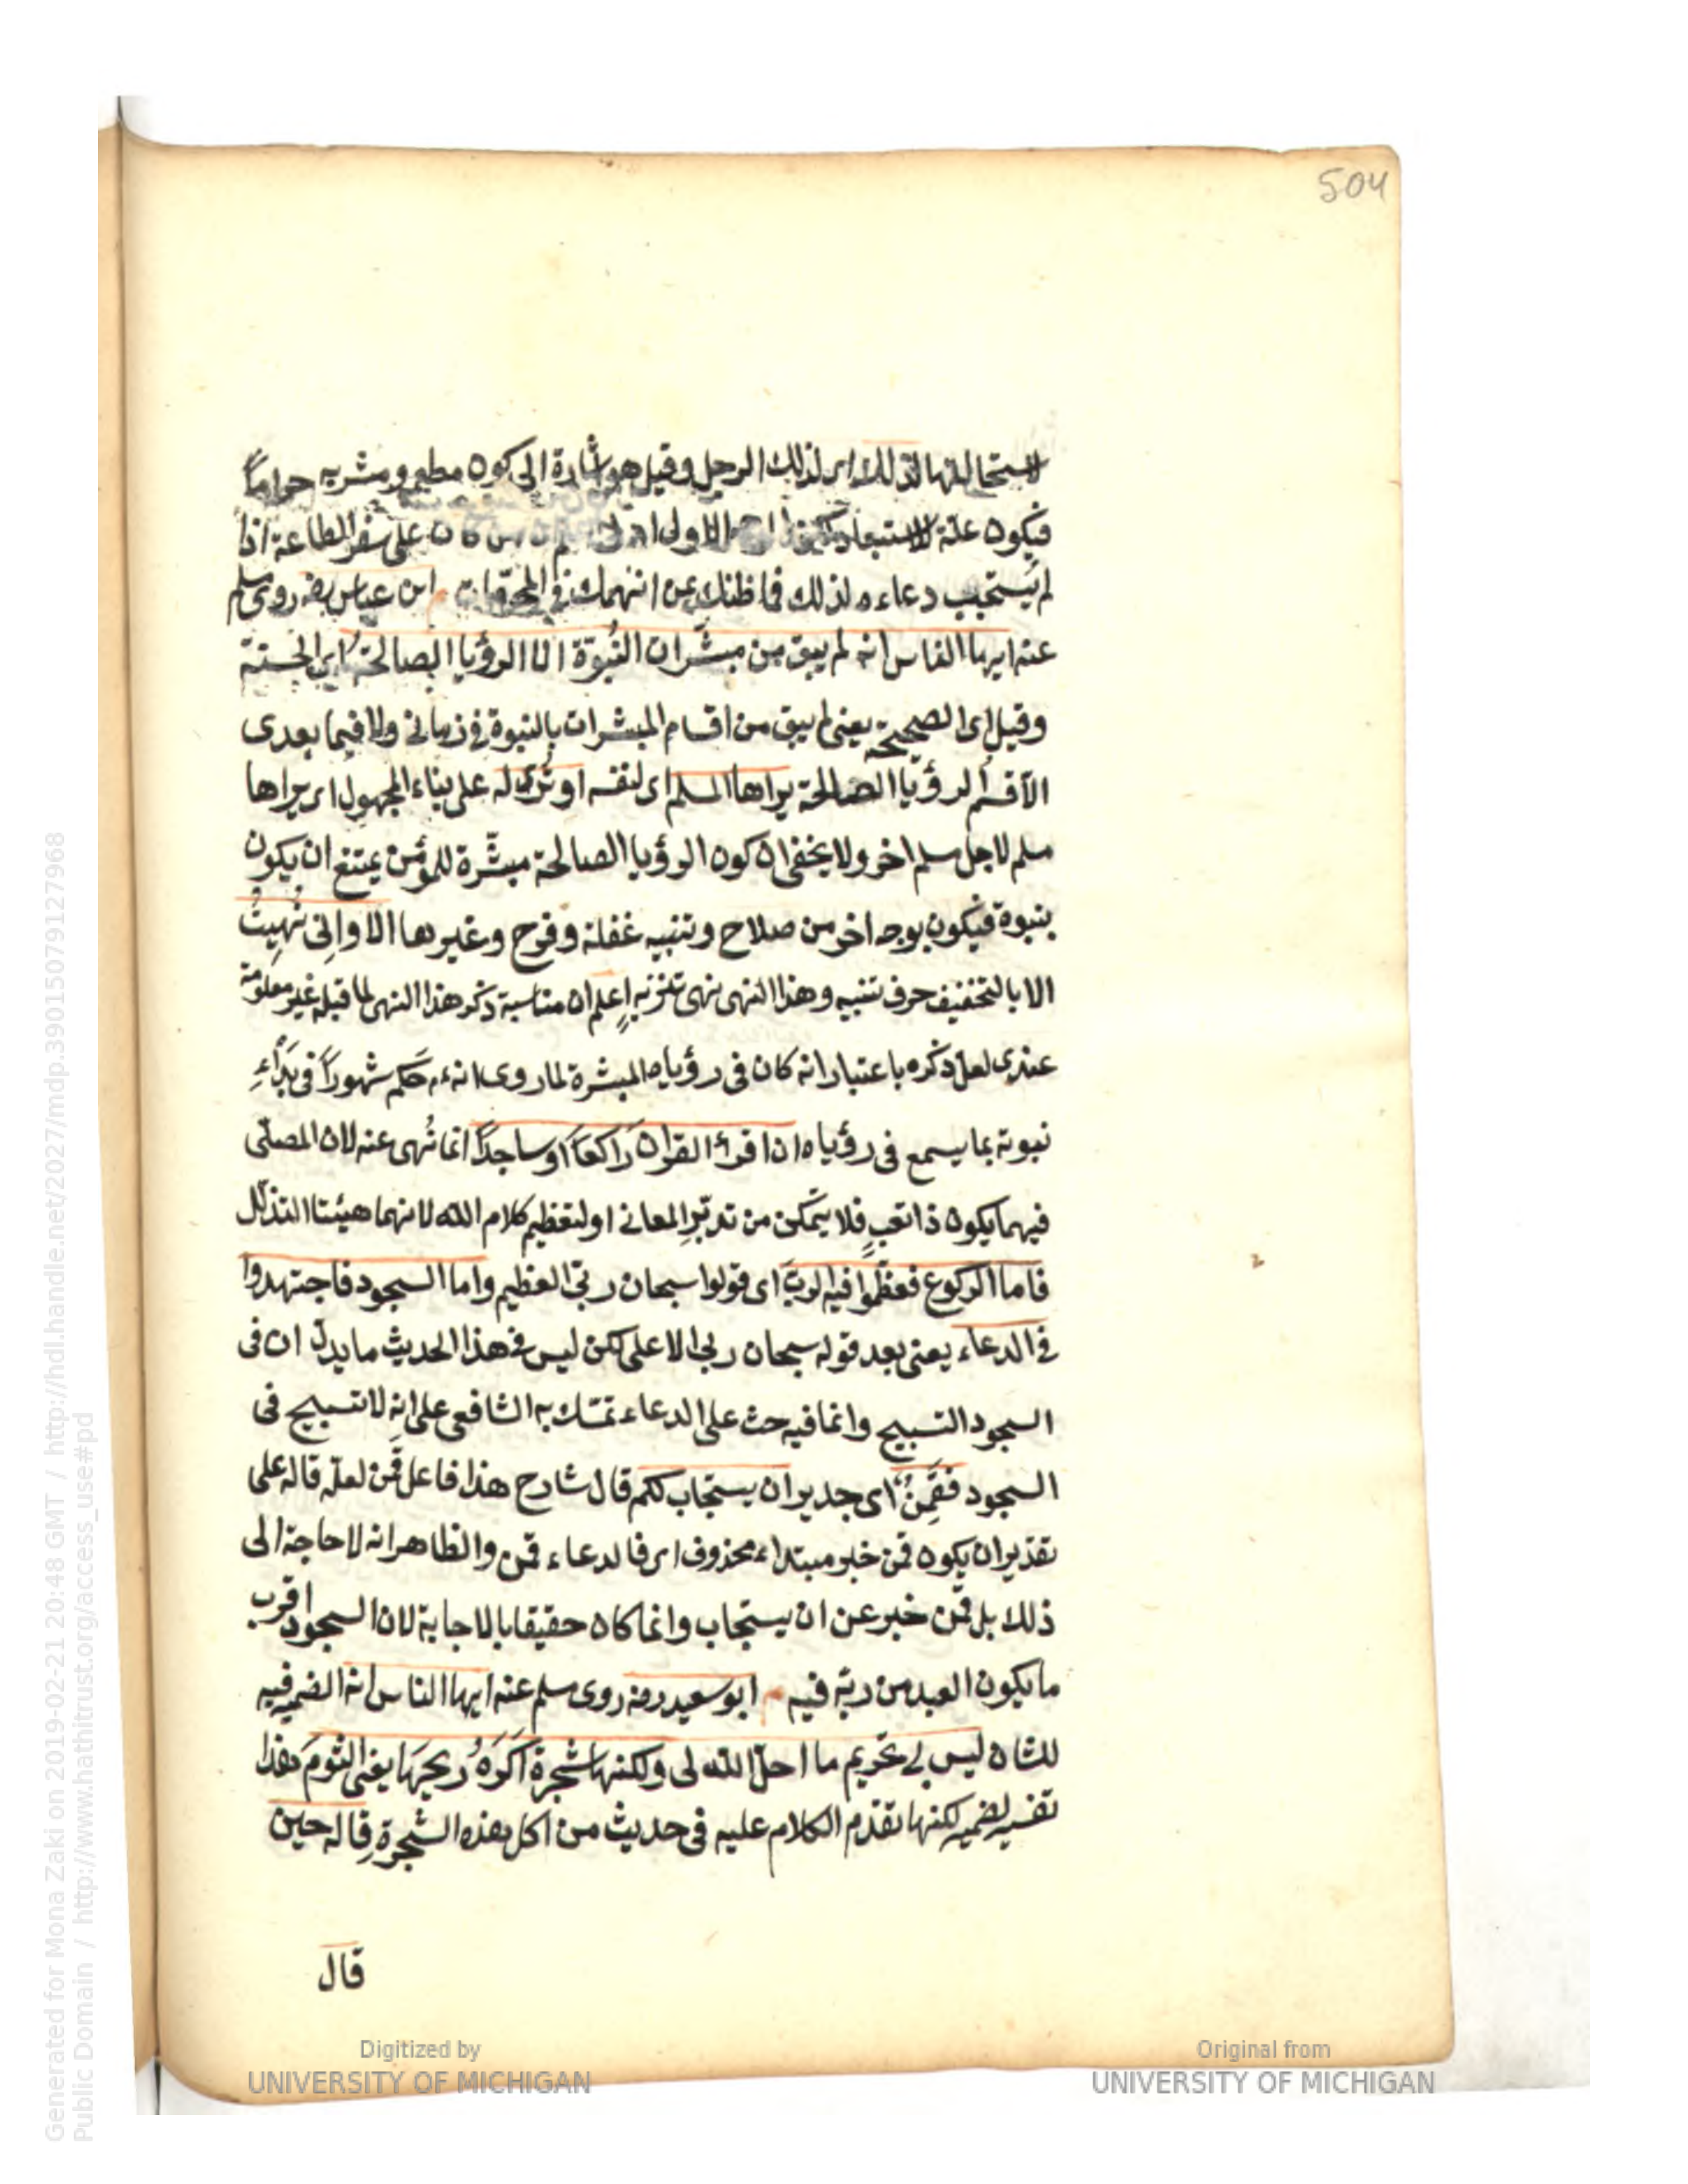 504
لذلك اى لذلك الرجل وقيل هو اشارة الى كون مطعمه ومشربه حراماً
فيكون علة لاستبعاد الاولى من كان على سفر الطاعة اذا
لم يُستجب دعاءه لذلك فما ظنك عن انهمك فى المحرمات ابن عباس رضه روى مسلم
عنه ايها الناس انه لم يبق من مبشّرات النُبوّة الا الرؤيا الصالحة اى الحسنة
وقيل اى الصحيحة يعنى لم يبق من اقسام المبشرات بالنبوة فى زمانى ولا فيما بعدى
الّا قسم الرؤيا الصالحة يراها المسلم اى لنفسه او تُرى له على بناء المجهول اى يراها
مسلم لاجل مسلم اخر ولا يخفى ان كون الرؤيا الصالحة مبشّرة للمؤمن يمتنع ان يكون
بنبوة فيكون بوجه اخر من صلاح وتنبيه غفلة وفرح وغيرها الا وانى نُهِيتُ
الا بالتخفيف حرف تنبيه وهذا النهى نهى تنزيه اعلم ان مناسبة ذكر هذا النهى لما قبله غير معلومة
عندى لعل ذكره باعتبار انه كان فى رؤياه المبشرة لما روى انه ءم حَكم شهوراً فى بَدْاءِ
نبوته بما يسمع فى رؤياه ان اقرأ القران راكعاً او ساجداً انما نُهى عنه لان المصلّى
فيهما يكون ذا تعبٍ فلا يتمكن من تدبّرِ المعانى او لتعظيم كلام الله لانهما هيئتا التذلّل
فاما الركوع فعظّموا فيه الربّ اى قولوا سبحان ربّى العظيم واما السجود فاجتهدوا
فى الدعاء يعنى بعد قوله سبحان ربى الاعلى لكن ليس فى هذا الحديث ما يدلّ ان فى
السجود التسبيح وانما فيه حث على الدعاء تمسّك به الشافعى على انه لا تسبيح فى
السجود فقَمِنٌ اى جدير ان يستجاب لكم قال شارح هذا فاعل قمن لعلّه قاله على
تقدير ان يكون قمن خبر مبتداء محذوف اى فالدعاء قمن والظاهر انه لا حاجة الى
ذلك بل قمن خبر عن ان يستجاب وانما كان حقيقا بالاجابة لان السجود اقرب
ما يكون العبد من ربّه فيه ابو سعيد رضه روى مسلم عنه ايها الناس انه الضمير فيه
للشان ليس لى تحريم ما احلّ الله لى ولكنها شجرة اَكْرَهُ ريحَهَا يعنى الثومَ هذا
تفسير لضمير لكنها تقدّم الكلام عليه فى حديث من اكل هذه الشجرة قاله حين
قال
Generated for Mona Zaki on 2019-02-21 20:48 GMT / http://hdl.handle.net/2027/mdp.39015079127968
Public Domain / http://www.hathitrust.org/access_use#pd
Digitized by
UNIVERSITY OF MICHIGAN
Original from
UNIVERSITY OF MICHIGAN